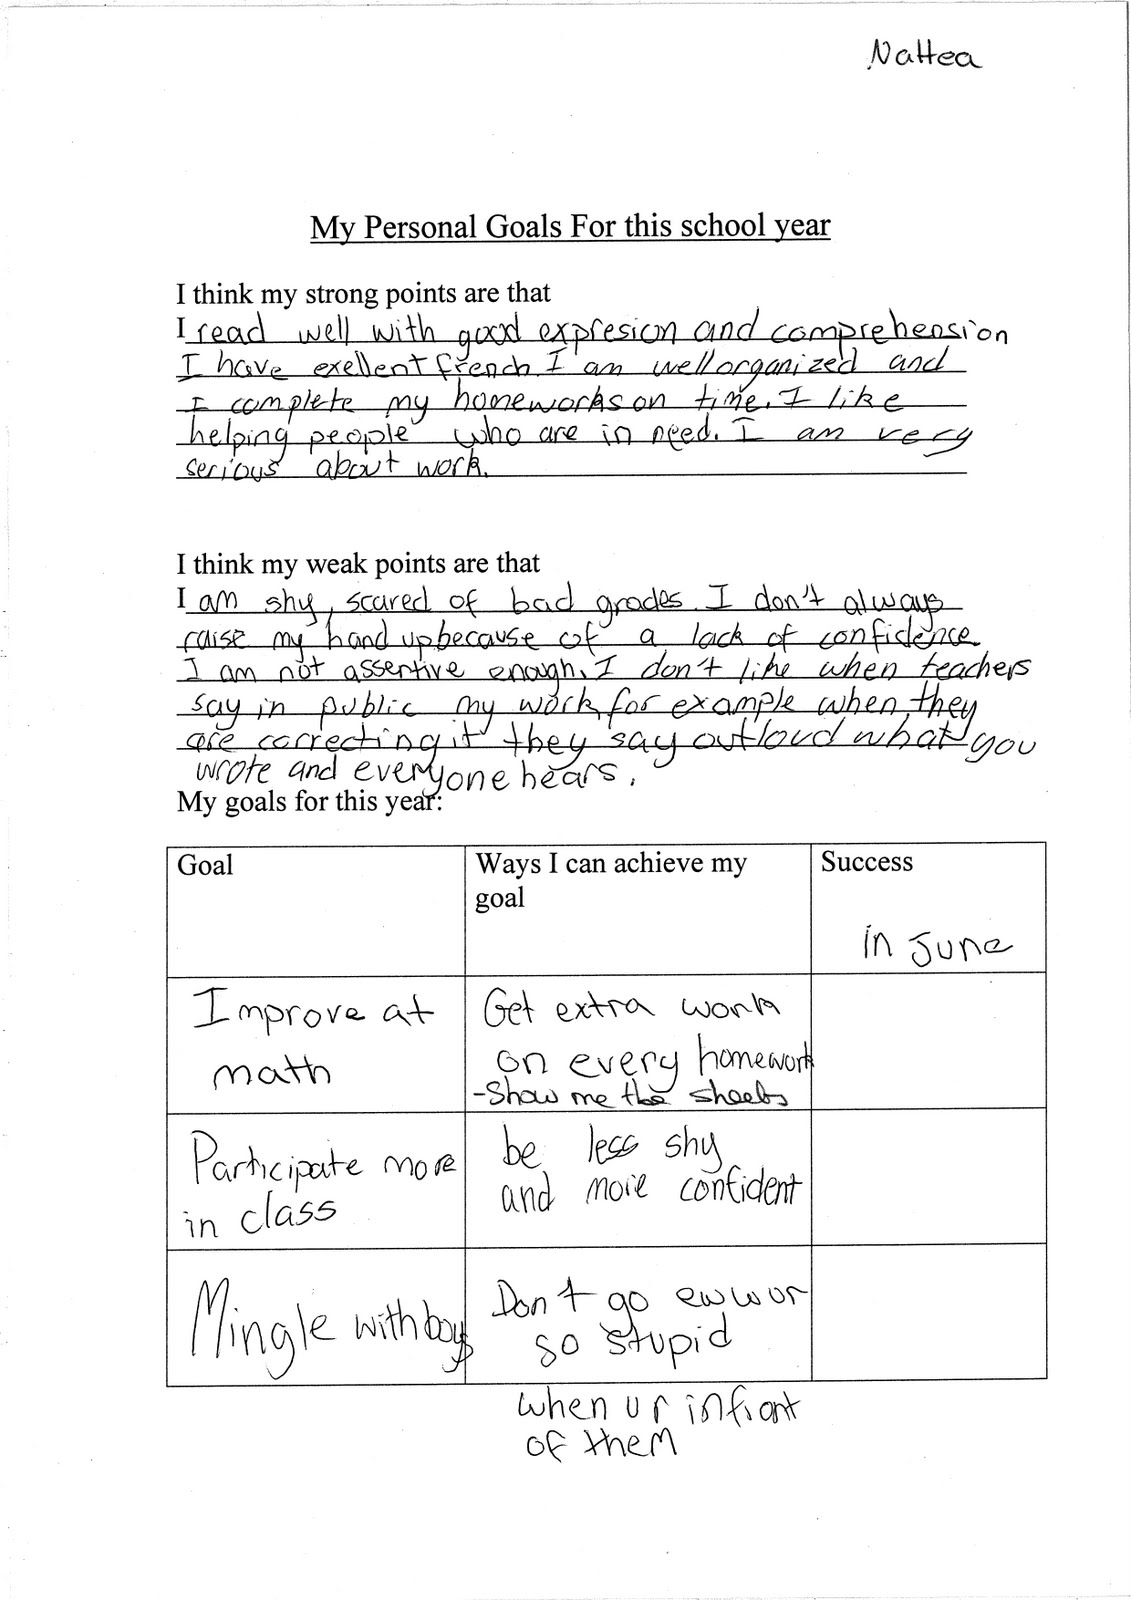 Nattea
My Personal Goals For this school year
I think my strong points are that
I read well with good expresion and comprehension
I have exellent french. I am well organized and
I complete my homeworks on time. I like
helping people who are in need. I am very
serious about work.
I think my weak points are that
I am shy, scared of bad grades. I don't always
raise my hand up because of a lack of confidence
I am not assertive enough. I don't like when teachers
say in public my work, for example when they
are correcting it they say outloud what you
wrote and everyone hears.
My goals for this year:
Goal
Ways I can achieve my
goal
Success
in June
Improve at
math
Get extra work
on every homework
-Show me the sheets
Participate more
in class
be less shy
and more confident
Mingle with boys
Don't go eww ur
so stupid
when ur infront
of them